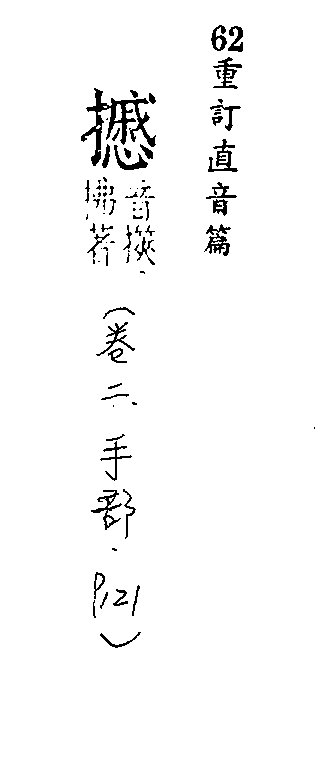 62重訂直音篇
音
拂著
（卷二．手部．P121）